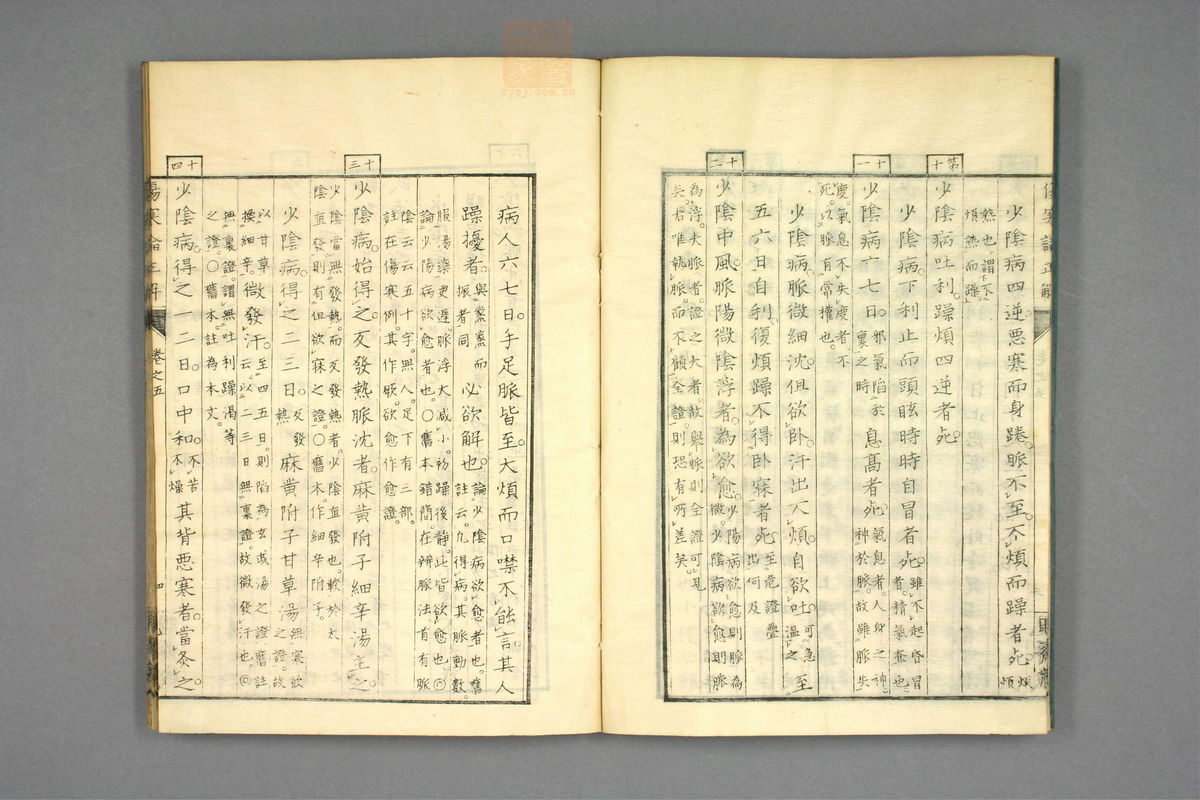 第十
少陰病四逆惡寒而身踡。脈不至。不煩而躁者死。煩煩
熱也。謂下不
煩熱而躁
少陰病吐利。躁煩四逆者死。
少陰病。下利止而頭眩時時自冒者死。雖不起昏冒者。精氣盡也。
十一
少陰病六七日。邪氣陷於裏之時息高者死。氣息者。人身之神。神於脈。故雖脈失
度。氣息不失度者。不
死。以脈有常權也。
少陰病。脈微細沈。但欲卧。汗出不煩。自欲吐。可急溫之至
五六日自利。復煩躁不得卧寐者死。至危證疊出何及
十二
少陰中風。脈陽微陰浮者。為欲愈。少陽病欲愈則脈為微。少陰病欲愈則脈
為浮。夫脈者。證之大者。故與脈則全證可見
矣。君唯執脈。而不顧全證。則恐有所差矣
病人六七日。手足脈皆至。大煩而口噤不能言。其人
躁擾者。與熏熏而振者同必欲解也。論少陰病欲愈者也。舊註云。凡得病。其脈動數。
服湯藥更遲。脈浮大減小。初躁後靜。此皆欲愈也。◎
論少陽病欲愈者也。○舊本錯簡。在辨脈法首有脈
陰云云五十字。無人。足下有三部。
註在傷寒例。其作瘥。欲愈作愈證。
十三
少陰病。始得之。反發熱脈沈者。麻黃附子細辛湯主之。
少陰當無發熱。而反發熱者。少陰直發也。較於太
陰直發。則有但欲寐之證。○舊本作細辛附子。
少陰病。得之二三日。反發熱麻黃附子甘草湯。無寒欲之證。故
以甘草換細辛。微發汗。至四五日。則陷為玄武湯之證。舊註云。以二三日無裏證。故微發汗也。◎
無裏證。謂無吐利躁渴等
之證。○舊本註為本文。
十四
少陰病。得之一二日。口中和。不苦不燥其背惡寒者。當灸之。
傷寒論正解 卷之五 四